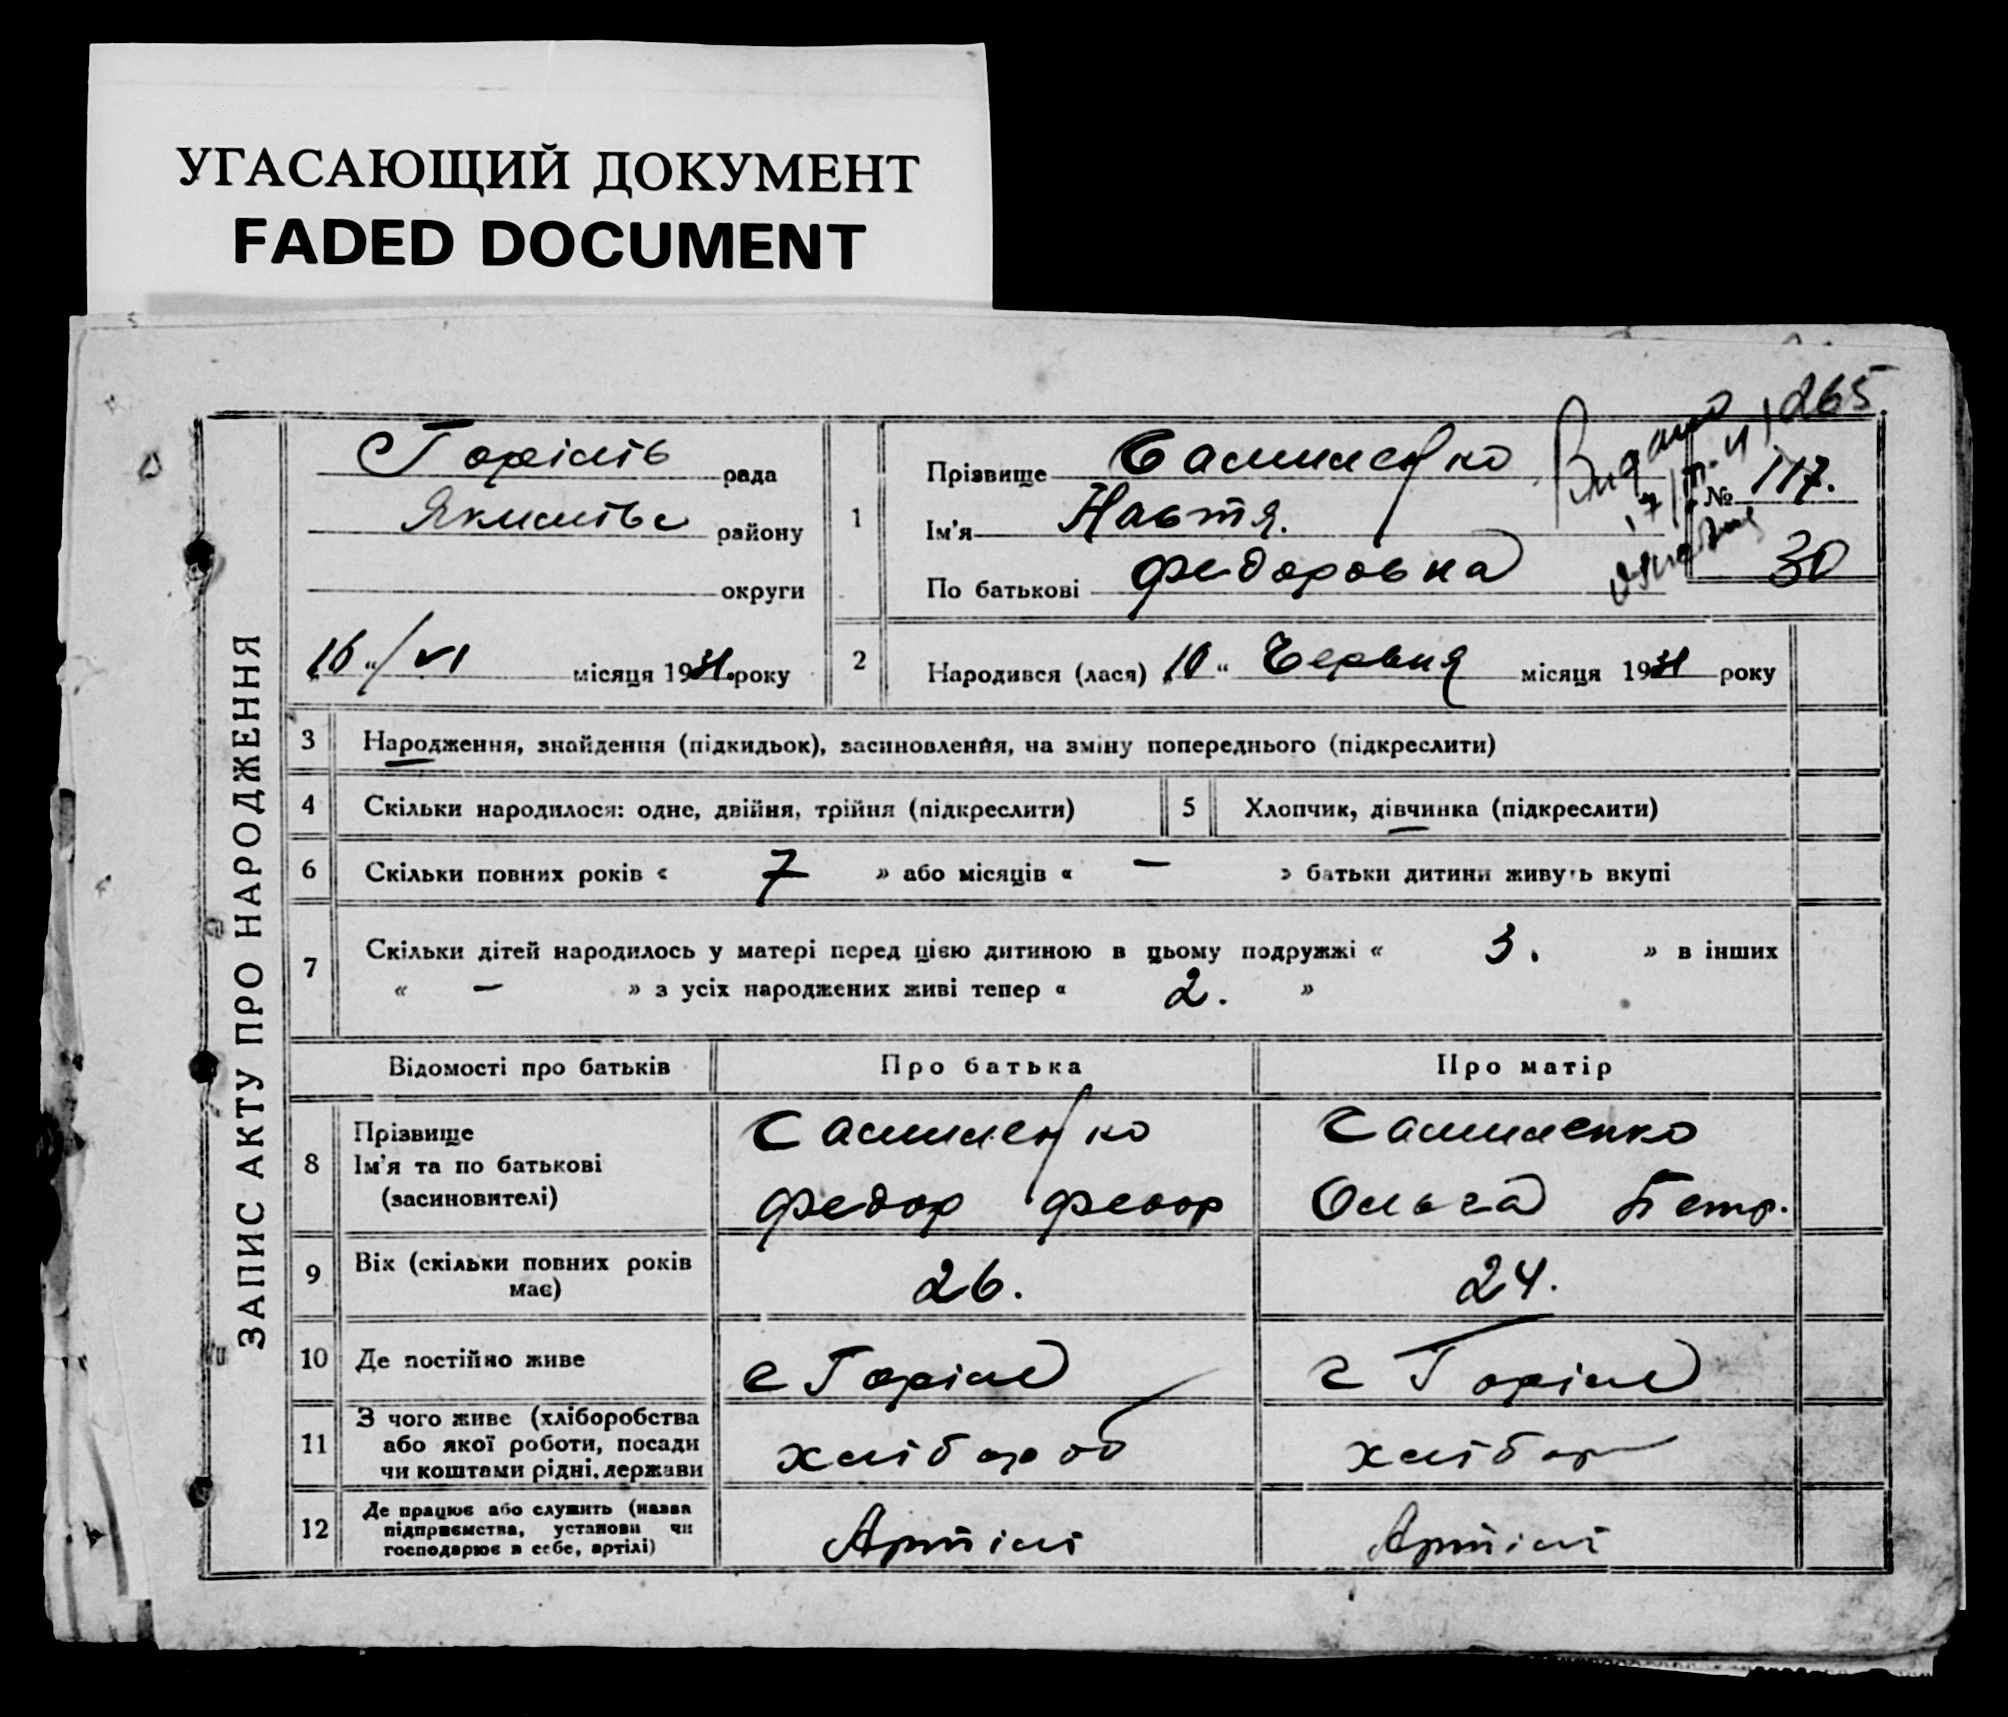 УГАСАЮЩИЙ ДОКУМЕНТ
FADED DOCUMENT
265
ЗАПИС АКТУ ПРО НАРОДЖЕННЯ
рада
району
округи
16 " / VI місяця 1931 року
1
Прізвище
Ім'я Настя.
По батькові Федоровна
Видано
№ 117.
30
2 Народився (лася) " 10 " Червня місяця 1931 року
3 Народження, знайдення (підкидьок), засиновлення, на зміну попереднього (підкреслити)
4 Скільки народилося: одне, двійня, трійня (підкреслити)
5 Хлопчик, дівчинка (підкреслити)
6 Скільки повних років « 7 » або місяців « – » батьки дитини живуть вкупі
7 Скільки дітей народилось у матері перед цією дитиною в цьому подружжі « 3. » в інших
« – » з усіх народжених живі тепер « 2. »
Відомості про батьків Про батька Про матір
8 Прізвище
Ім'я та по батькові
(засиновителі)
Федор Федор
Ольга Петр.
9 Вік (скільки повних років має) 26. 24.
10 Де постійно живе
11 З чого живе (хліборобства
або якої роботи, посади
чи коштами рідні, держави
хлібороб хлібор
12 Де працює або служить (назва
підприємства, установи чи
господарює в себе, артілі)
Артілі Артілі